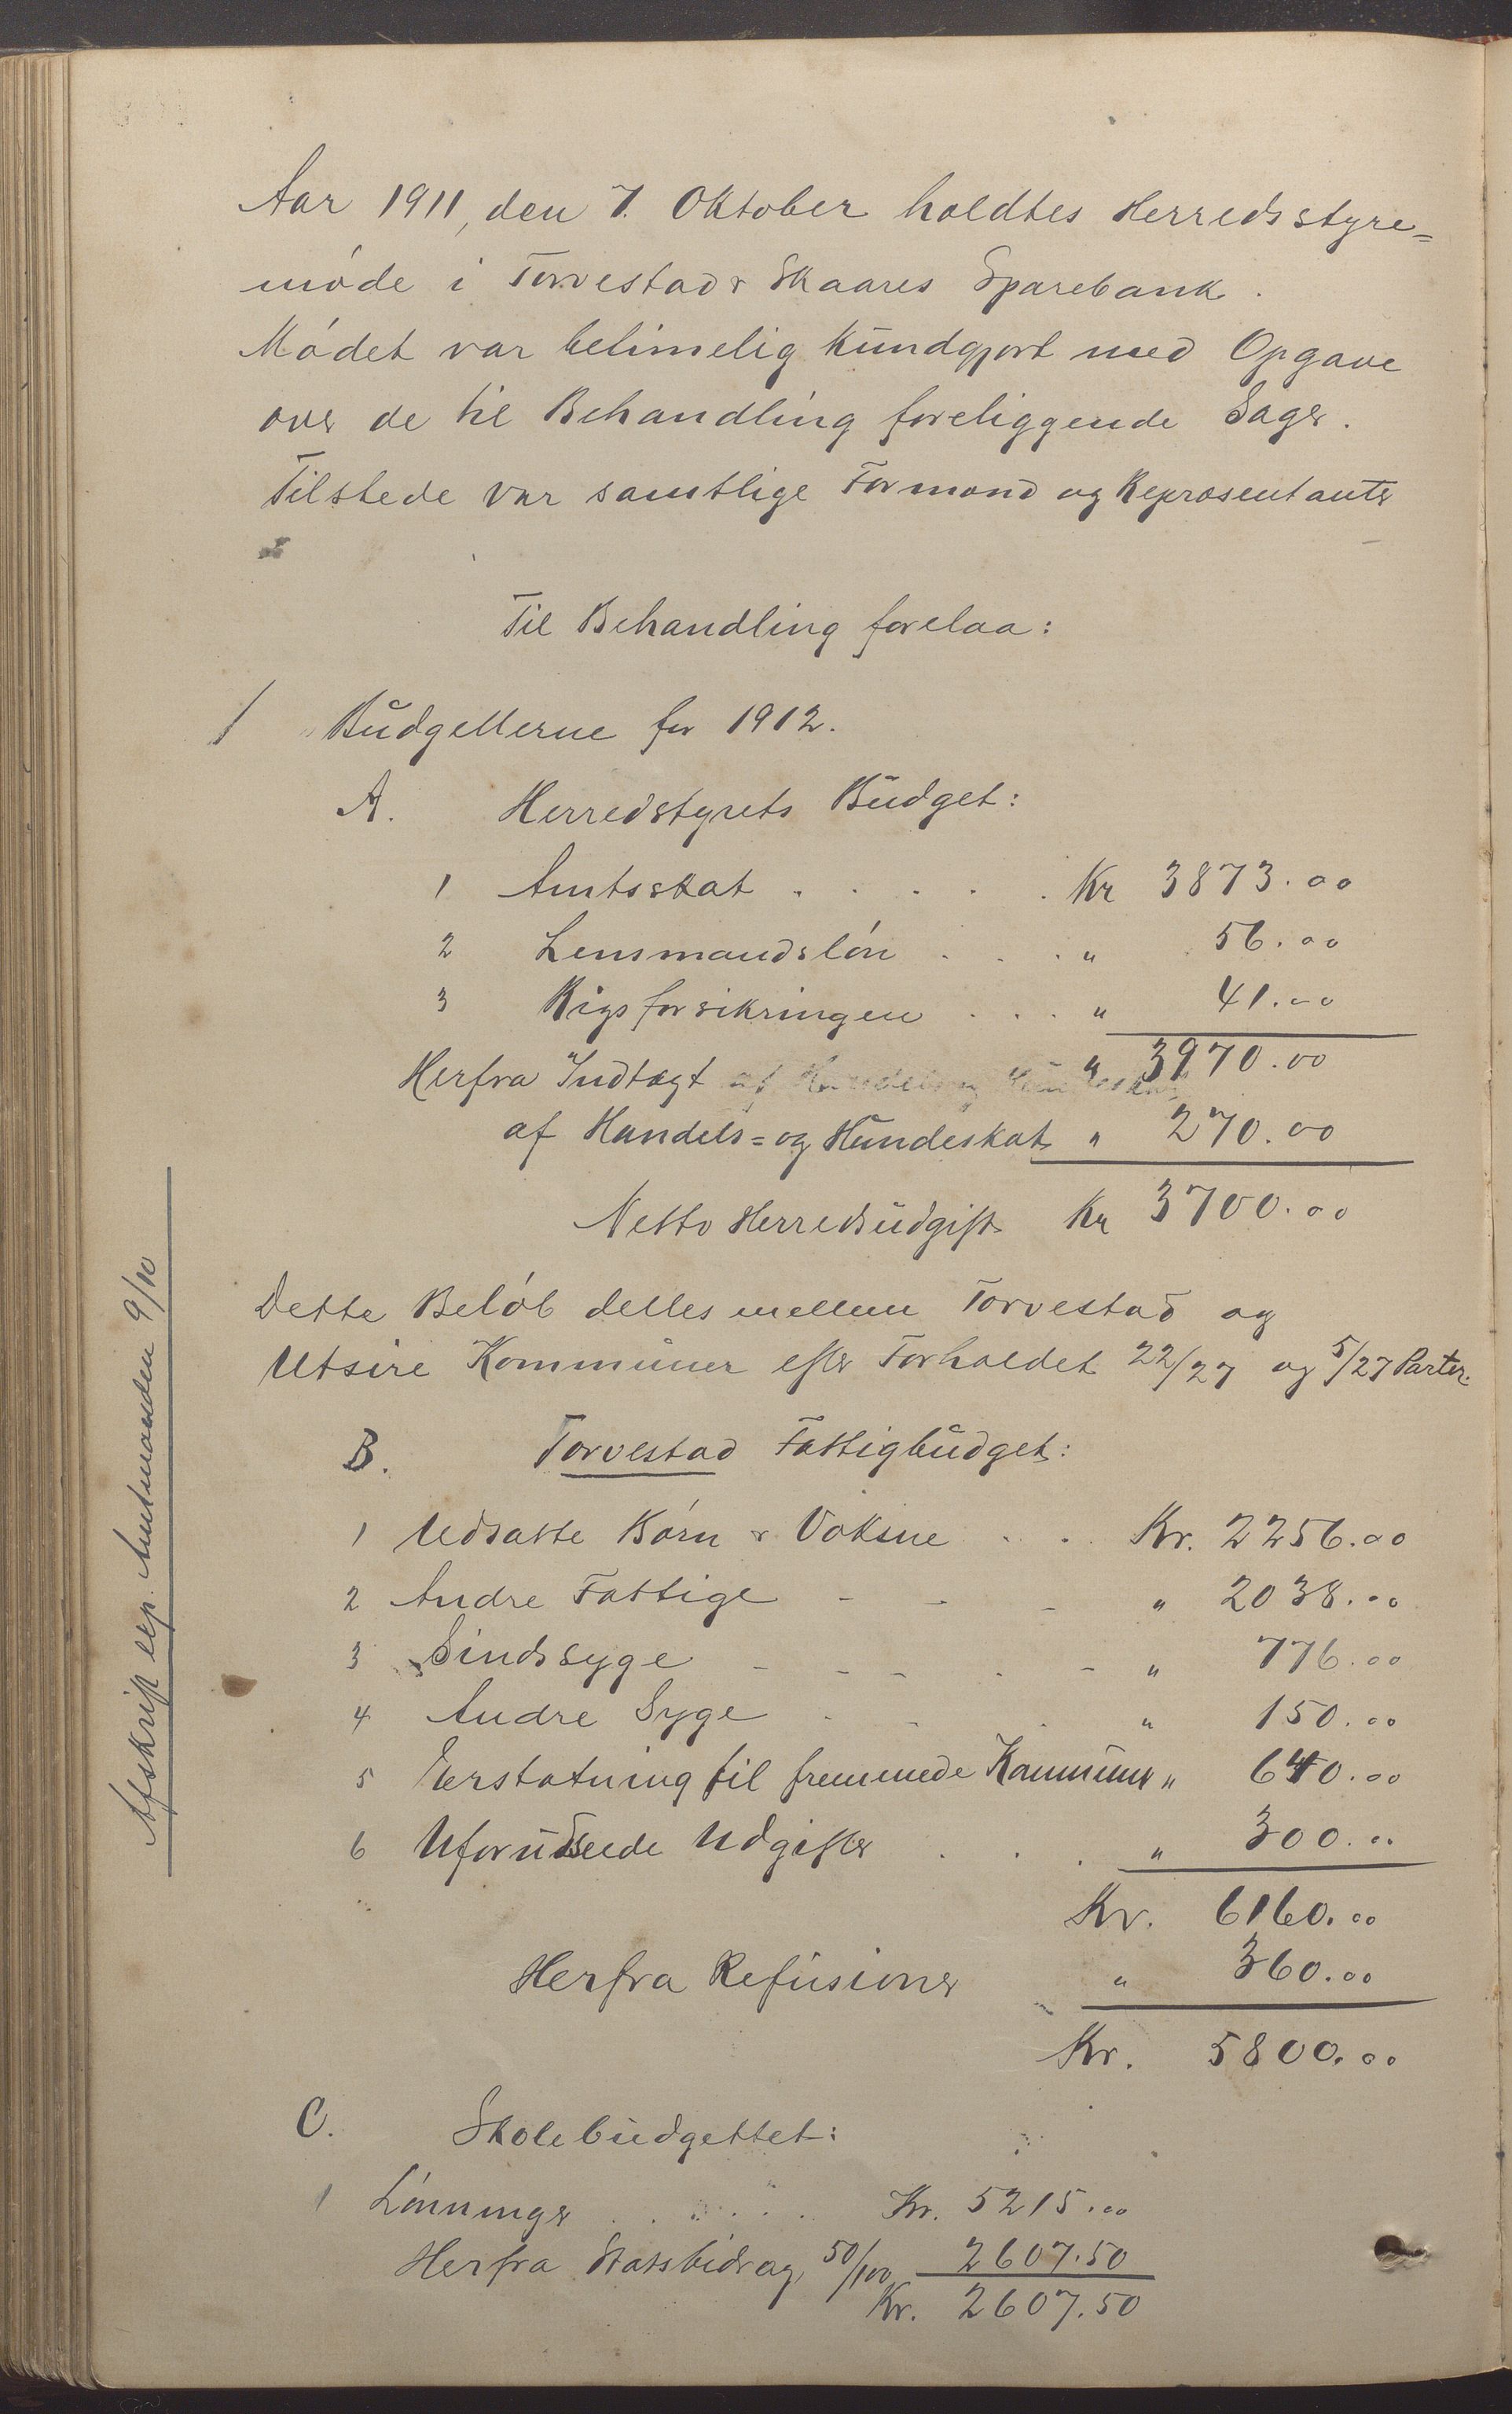 Aar 1911, den 7. Oktober holdtes Herredsstyre=
møde i Torvestad & Skaares Sparebank.
Mødet var belimelig kundgjort med Opgave
over de til Behandling foreliggende Sager.
Tilstede var samtlige Formænd og Repræsentanter
Til Behandling forelaa:
1 Budgetterne for 1912.
A. Herredstyrets Budget:
1 Amtsskat . . . . . Kr 3873.00
2 Lensmandsløn . . . " 56.00
3 Rigsforsikringen . . . " 41.00
" 3970.00
Herfra Indtægt af Handels og Hundeskat
af Handels= og Hundeskat " 270.00
Netto Herredsudgift Kr 3700.00
Dette Beløb delles mellem Torvestad og
Utsire Kommuner efter Forholdet 22/27 og 5/27 Parter.
B. Torvestad Fattigbudget:
1 Udsatte Børn & Voksne . . Kr. 2256.00
2 Andre Fattige - - - " 2038.00
3 Sindssyge - - - . - " 776.00
4 Andre Syge - - . " 150.00
5 Erstatning til fremmede Kommuner " 640.00
6 Uforudseede Udgifter . . . " 300.00
Kr. 6160.00
Herfra Refusioner " 360.00
Kr. 5800.00
C. Skolebudgettet:
1 Lønninger . . . . . Kr. 5215.00
Herfra Statsbidrag 50/100 2607.50
Kr. 2607.50
Afskrift exp. Amtmanden 9/10